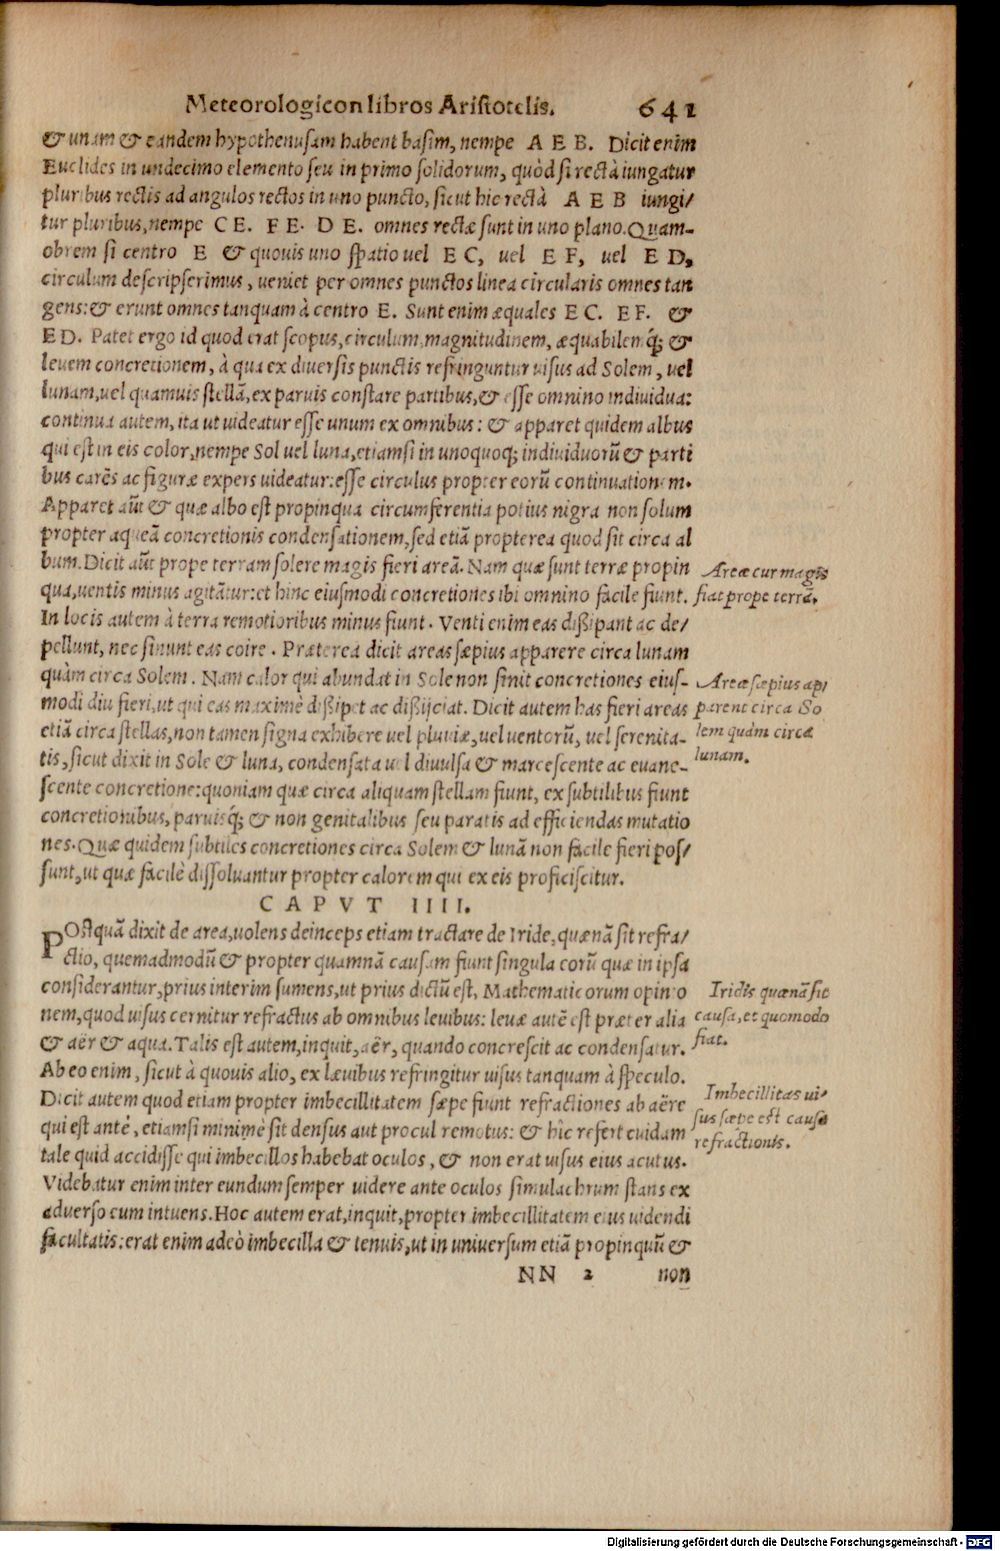 Meteorologicon libros Aristotelis. 641
& unam & eandem hypothenusam habent basim, nempe A E B. Dicit enim
Euclides in undecimo elemento seu in primo solidorum, quòd si rectà iungatur
pluribus rectis ad angulos rectos in uno puncto, sicut hic rectà A E B iungi/
tur pluribus, nempe C E. F E. D E. omnes rectæ sunt in uno plano. Quam-
obrem si centro E & quouis uno spatio uel E C, uel E F, uel E D,
circulum descripserimus, ueniet per omnes punctos linea circularis omnes tan
gens: & erunt omnes tanquam à centro E. Sunt enim æquales E C. E F. &
E D. Patet ergo id quod erat scopus, circulum, magnitudinem, æquabilemq́; &
leuem concretionem, à qua ex diuersis punctis refringuntur uisus ad Solem, uel
lunam, uel quamuis stellã, ex paruis constare partibus, & esse omnino indiuidua:
continua autem, ita ut uideatur esse unum ex omnibus: & apparet quidem albus
qui est in eis color, nempe Sol uel luna, etiamsi in unoquoq; indiuiduorũ & parti
bus carẽs ac figuræ expers uideatur: esse circulus propter eorũ continuationem.
Apparet aũt & quæ albo est propinqua circumferentia potius nigra non solum
propter aqueã concretionis condensationem, sed etiã propterea quod sit circa al
bum. Dicit aũt prope terram solere magis fieri areã. Nam quæ sunt terræ propin
qua, uentis minus agitãtur: et hinc eiusmodi concretiones ibi omnino facile fiunt.
In locis autem à terra remotioribus minus fiunt. Venti enim eas dißipant ac de/
pellunt, nec sinunt eas coire. Præterea dicit areas sæpius apparere circa lunam
quàm circa Solem. Nam calor qui abundat in Sole non sinit concretiones eius-
modi diu fieri, ut qui eas maximè dißipet ac dißijciat. Dicit autem has fieri areas
etiã circa stellas, non tamen signa exhibere uel pluuiæ, uel uentorũ, uel serenita-
tis, sicut dixit in Sole & luna, condensata uel diuulsa & marcescente ac euane-
scente concretione: quoniam quæ circa aliquam stellam fiunt, ex subtilibus fiunt
concretionibus, paruisq́; & non genitalibus seu paratis ad efficiendas mutatio
nes. Quæ quidem subtiles concretiones circa Solem & lunã non facile fieri pos/
sunt, ut quæ facilè dissoluantur propter calorem qui ex eis proficiscitur.
Areæ cur magis
fiāt prope terrã.
Areæ sæpius ap/
parent circa So
lem quàm circa
lunam.
CAPVT IIII.
POstquã dixit de area, uolens deinceps etiam tractare de Iride, quænã sit refra/
ctio, quemadmodũ & propter quamnã causam fiunt singula eorũ quæ in ipsa
considerantur, prius interim sumens, ut prius dictũ est, Mathematicorum opinio
nem, quod uisus cernitur refractus ab omnibus leuibus: leuæ autẽ est præter alia
& aër & aqua. Talis est autem, inquit, aër, quando concrescit ac condensatur.
Ab eo enim, sicut à quouis alio, ex læuibus refringitur uisus tanquam à speculo.
Dicit autem quod etiam propter imbecillitatem sæpe fiunt refractiones ab aëre
qui est antè, etiamsi minimè sit densus aut procul remotus: & hîc refert cuidam
tale quid accidisse qui imbecillos habebat oculos, & non erat uisus eius acutus.
Videbatur enim inter eundum semper uidere ante oculos simulachrum stans ex
aduerso eum intuens. Hoc autem erat, inquit, propter imbecillitatem eius uidendi
facultatis: erat enim adeò imbecilla & tenuis, ut in uniuersum etiã propinquũ &
Iridis quænã sit
causa, et quomodo
fiat.
Imbecillitas ui/
sus sæpe est causa
refractionis.
NN 2 non
Digitalisierung gefördert durch die Deutsche Forschungsgemeinschaft - DFG